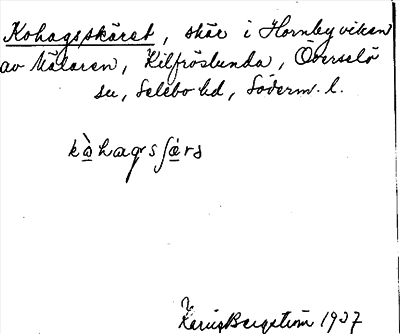 Kohagsskäret, skär i Hornbyviken
av Mälaren, Kilfröslunda, Överselö
sn, Selebo hd, Söderm. l.
Karin Bergström 1937